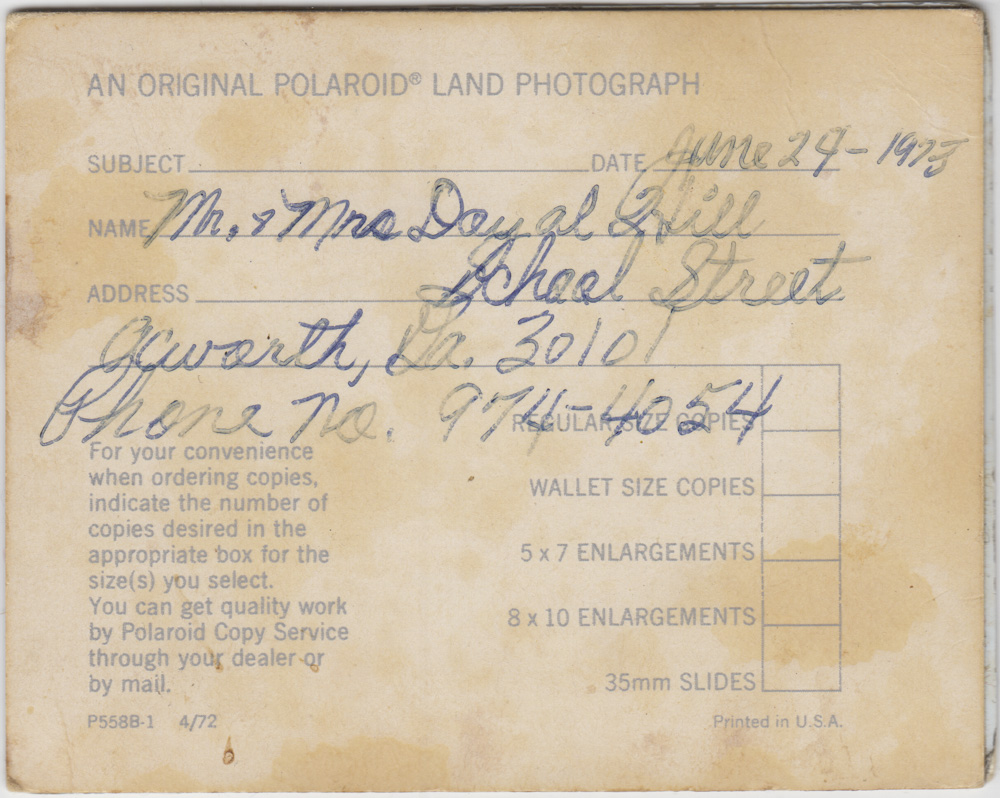 AN ORIGINAL POLAROID® LAND PHOTOGRAPH
SUBJECT DATE June 24-1973
NAME Mr. & Mrs Doyal Hill
ADDRESS School Street
Acworth, Ga. 30101
Phone no. 974-4054
REGULAR SIZE COPIES
For your convenience
when ordering copies,
indicate the number of
copies desired in the
appropriate box for the
size(s) you select.
You can get quality work
by Polaroid Copy Service
through your dealer or
by mail.
WALLET SIZE COPIES
5 x 7 ENLARGEMENTS
8 x 10 ENLARGEMENTS
35mm SLIDES
P558B-1 4/72
Printed in U.S.A.